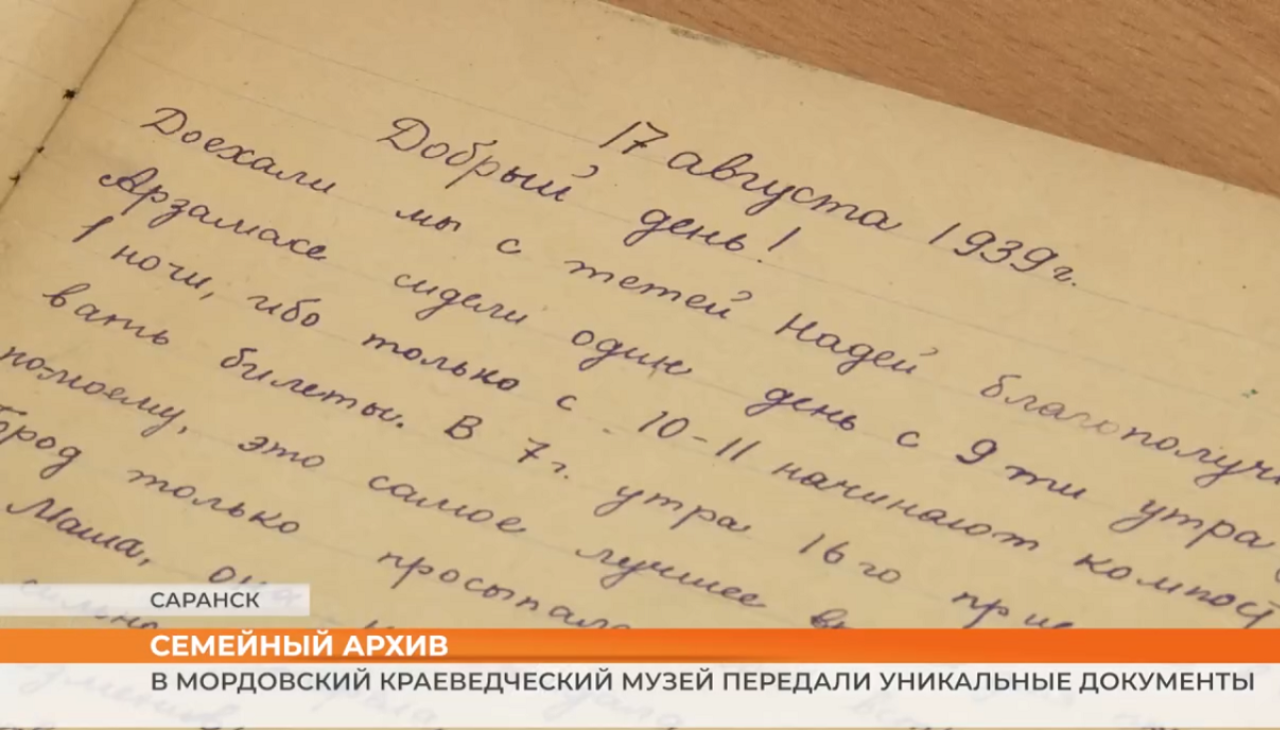 17 августа 1939г.
Добрый день!
Доехали мы с тетей Надей благополучн
Арзамасе сидели один день с 9ти утра
1 ночи, ибо только с 10-11 начинают компост
вать билеты. В 7г. утра 16го прие
по-моему, это самое лучшее в
город только просыпал
Маша, она
сильно
САРАНСК
СЕМЕЙНЫЙ АРХИВ
В МОРДОВСКИЙ КРАЕВЕДЧЕСКИЙ МУЗЕЙ ПЕРЕДАЛИ УНИКАЛЬНЫЕ ДОКУМЕНТЫ